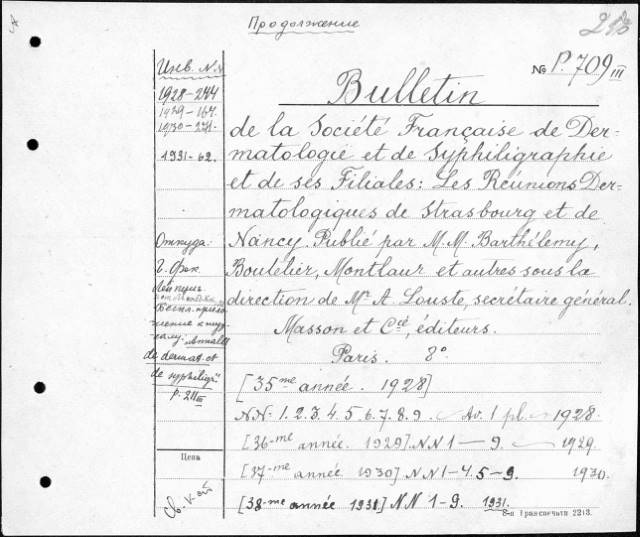 Продолжение
Инв. №№
1928-244
1929-164.
1930-271.
1931-62.
№ P. 709 III
Bulletin
de la Société Française de Der-
matologie et de Syphiligraphie
et de ses Filiales: Les Réunions Der-
matologiques de Strasbourg et de
Nancy. Publié par M.M. Barthélemy,
Boutelier, Montlaur et autres sous la
direction de Mr A. Louste, secrétaire général.
Masson et Cie, éditeurs.
Paris. 8°
Откуда:
Annales
de dermat. et
de syphiligr.
P. 211 III
[35me année. 1928]
NN: 1. 2. 3. 4. 5. 6. 7. 8. 9. Av. 1 pl. 1928.
[36-me année. 1929]. NN 1 — 9. 1929.
[37-me année 1930] NN 1-4. 5-9. 1930.
[38-me année 1931] NN 1-9. 1931.
Цена
8-я Транспечати 2213.